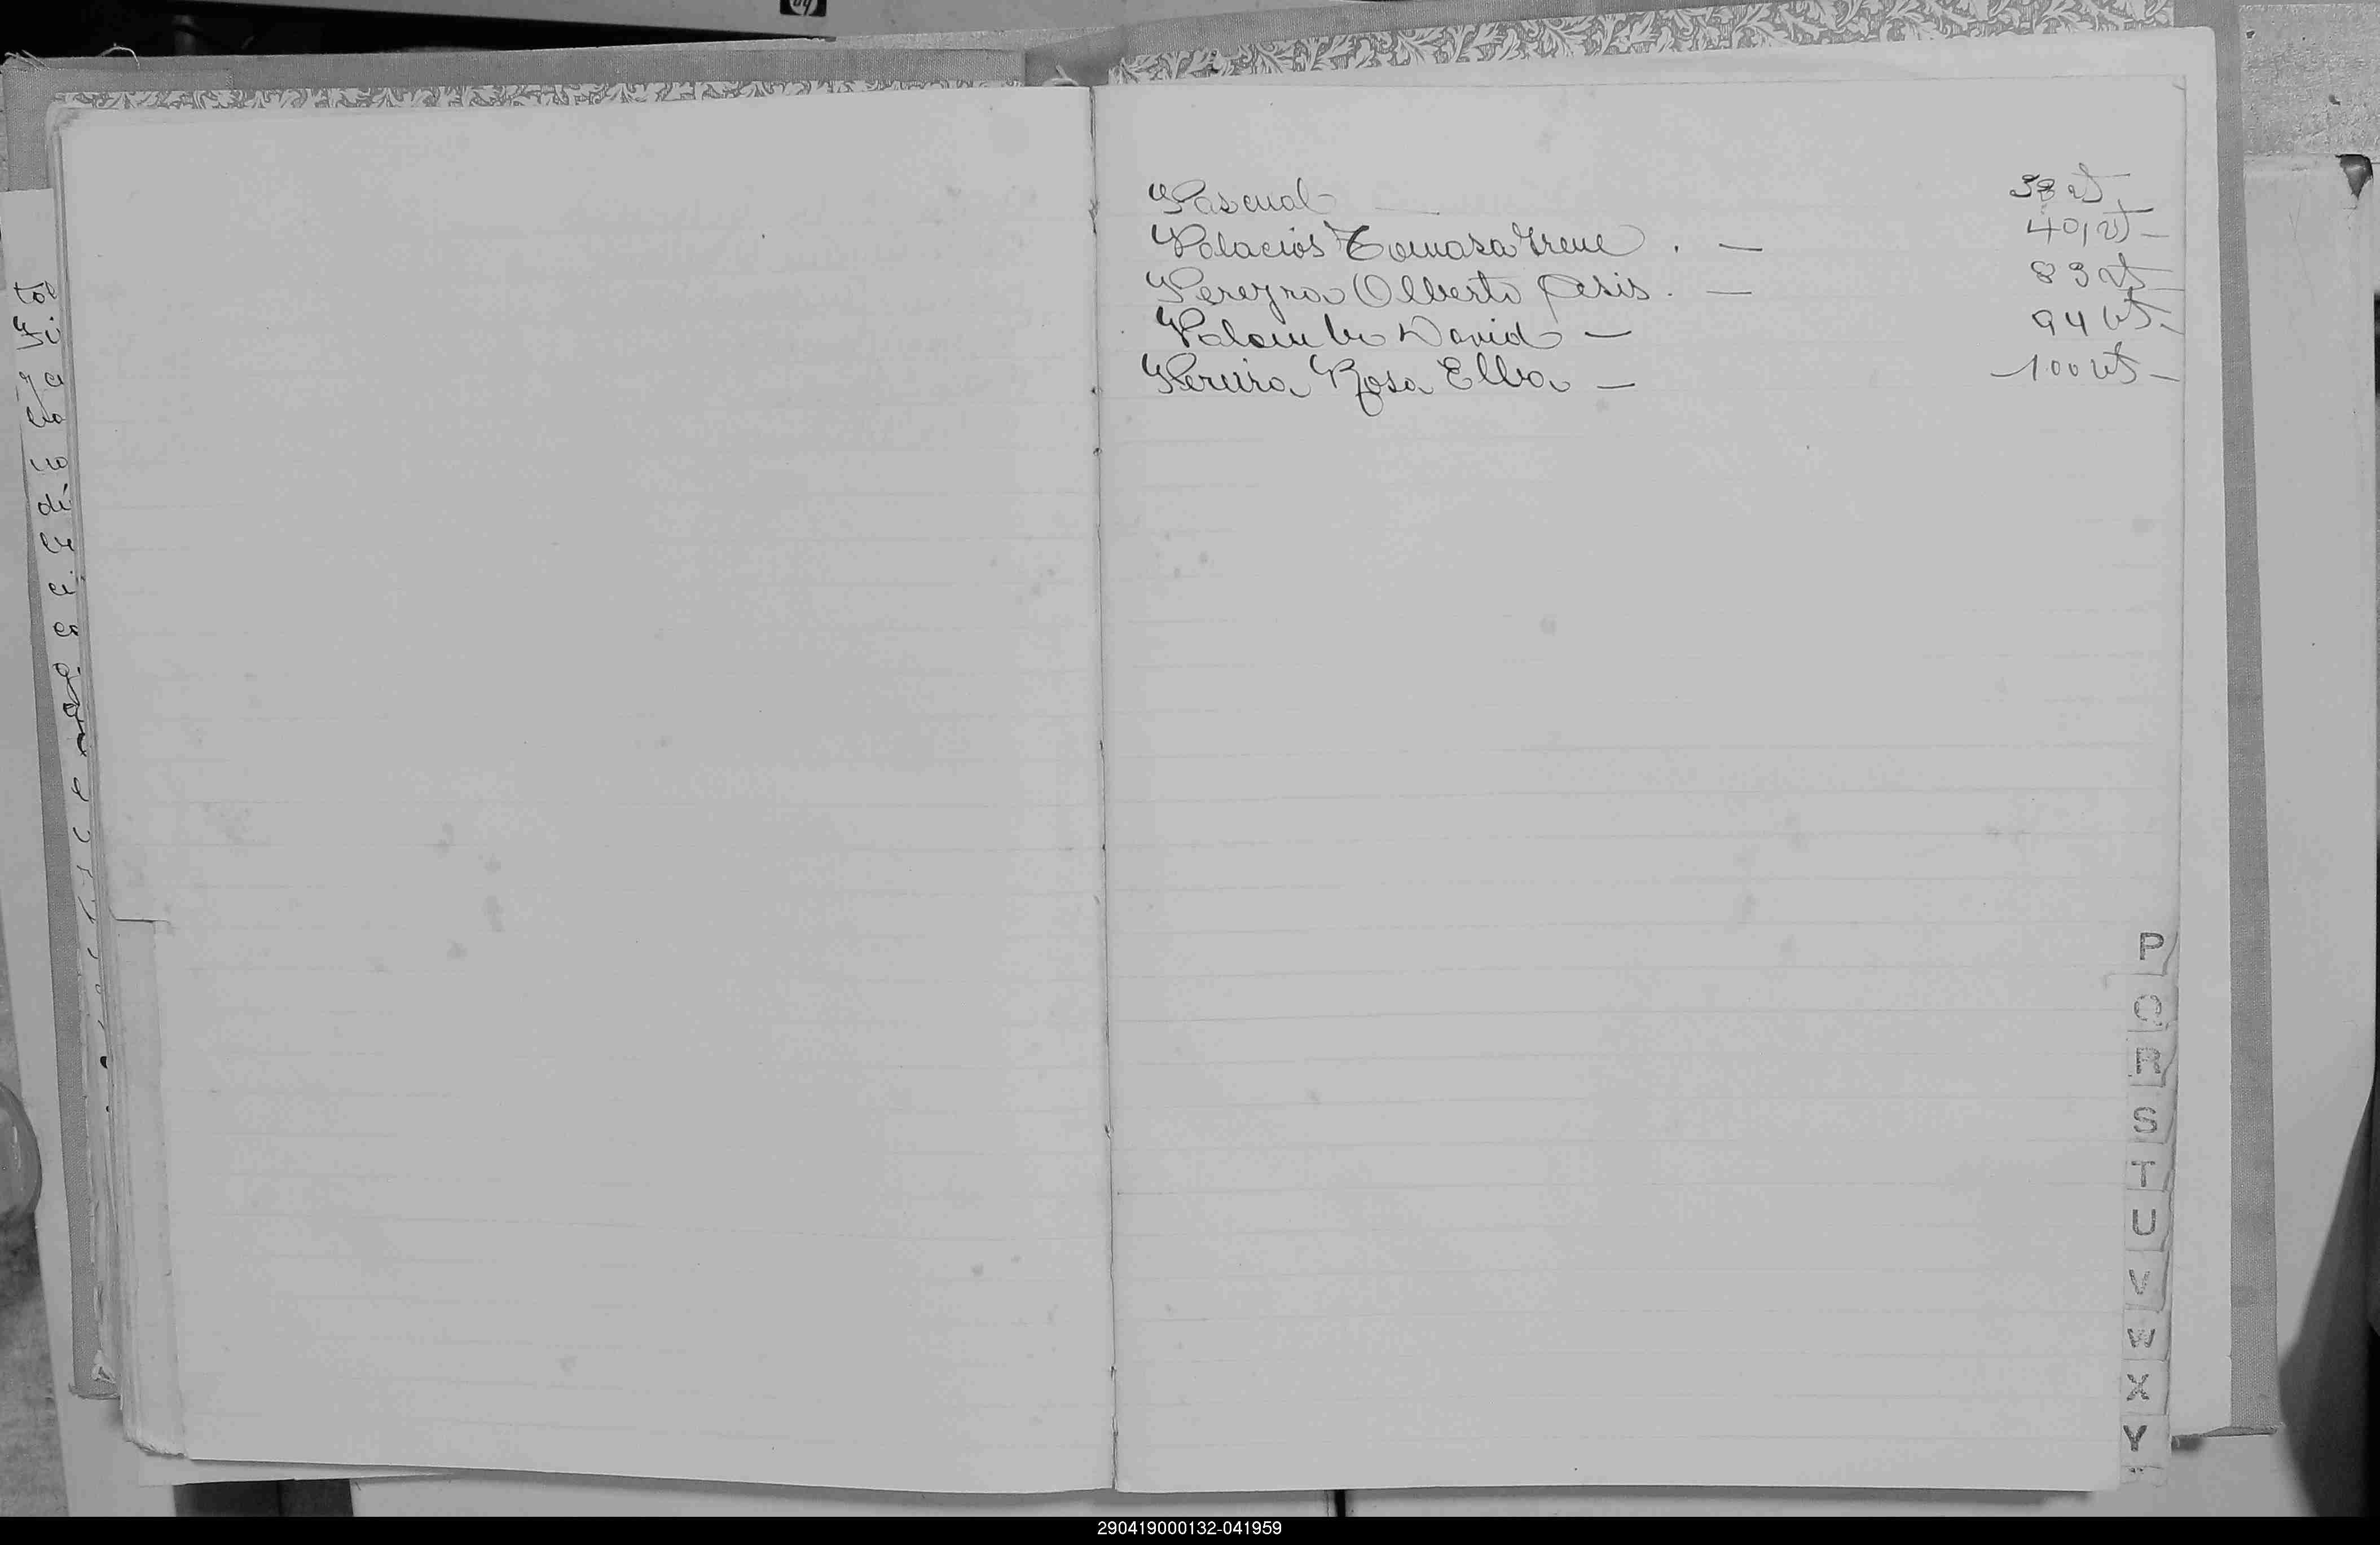 Pascual — 38 vt
Palacios Tomasa Irene . — 40 vt —
Pereyra Olberto Asis . — 83 vt —
Palombo David — 94 vt —
Pereira Rosa Elba — 100 vt —
P
Q
R
S
T
U
V
W
X
Y
290419000132-041959